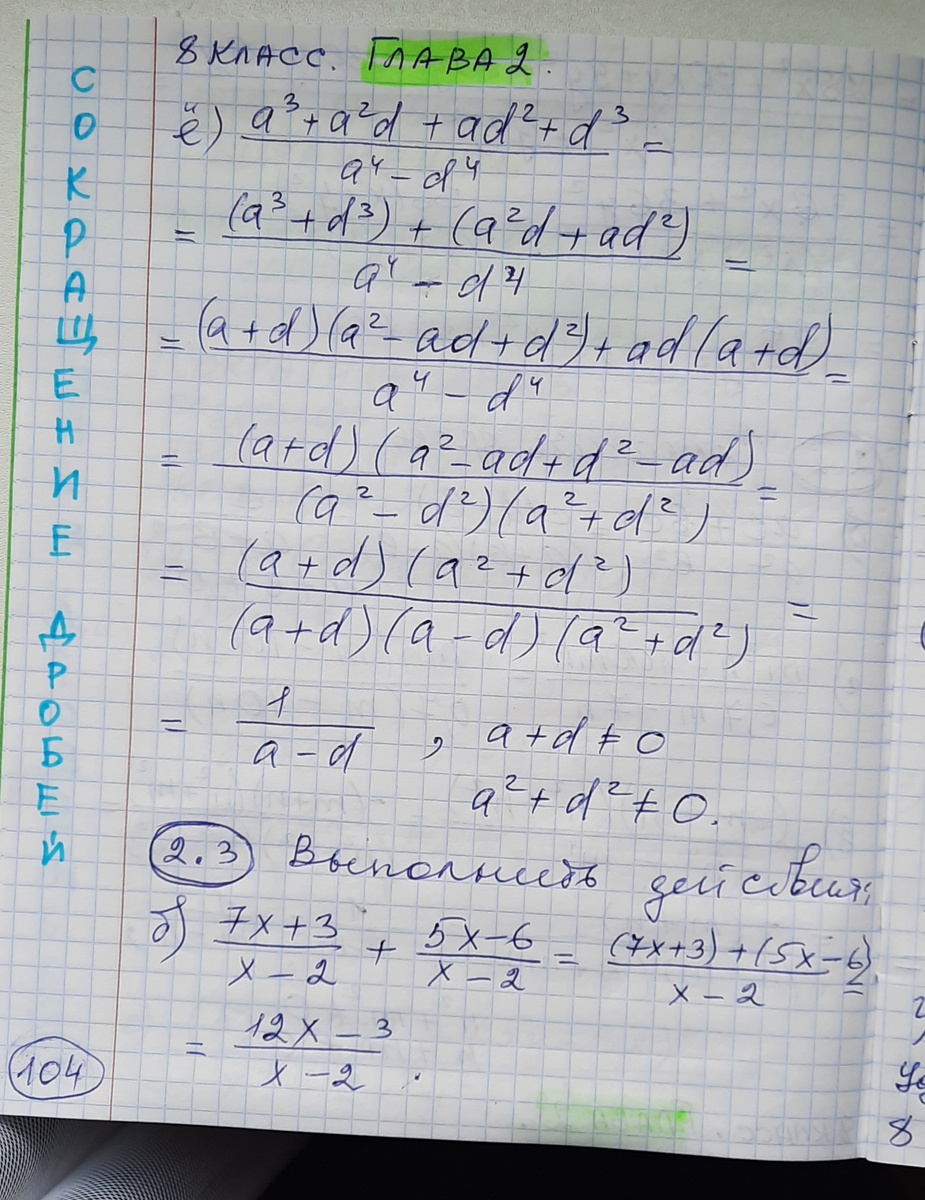 СОКРАЩЕНИЕ ДРОБЕЙ
8 КЛАСС. ГЛАВА 2.
ё) (a³ + a²d + ad² + d³) / (a⁴ − d⁴) =
= ((a³ + d³) + (a²d + ad²)) / (a⁴ − d⁴) =
= ((a + d)(a² − ad + d²) + ad(a + d)) / (a⁴ − d⁴) =
= ((a + d)(a² − ad + d² − ad)) / ((a² − d²)(a² + d²)) =
= ((a + d)(a² + d²)) / ((a + d)(a − d)(a² + d²)) =
= 1 / (a − d), a + d ≠ 0
a² + d² ≠ 0.
2.3 Выполнить действия:
б) (7x + 3) / (x − 2) + (5x − 6) / (x − 2) = ((7x + 3) + (5x − 6)) / (x − 2) =
= (12x − 3) / (x − 2).
104
8